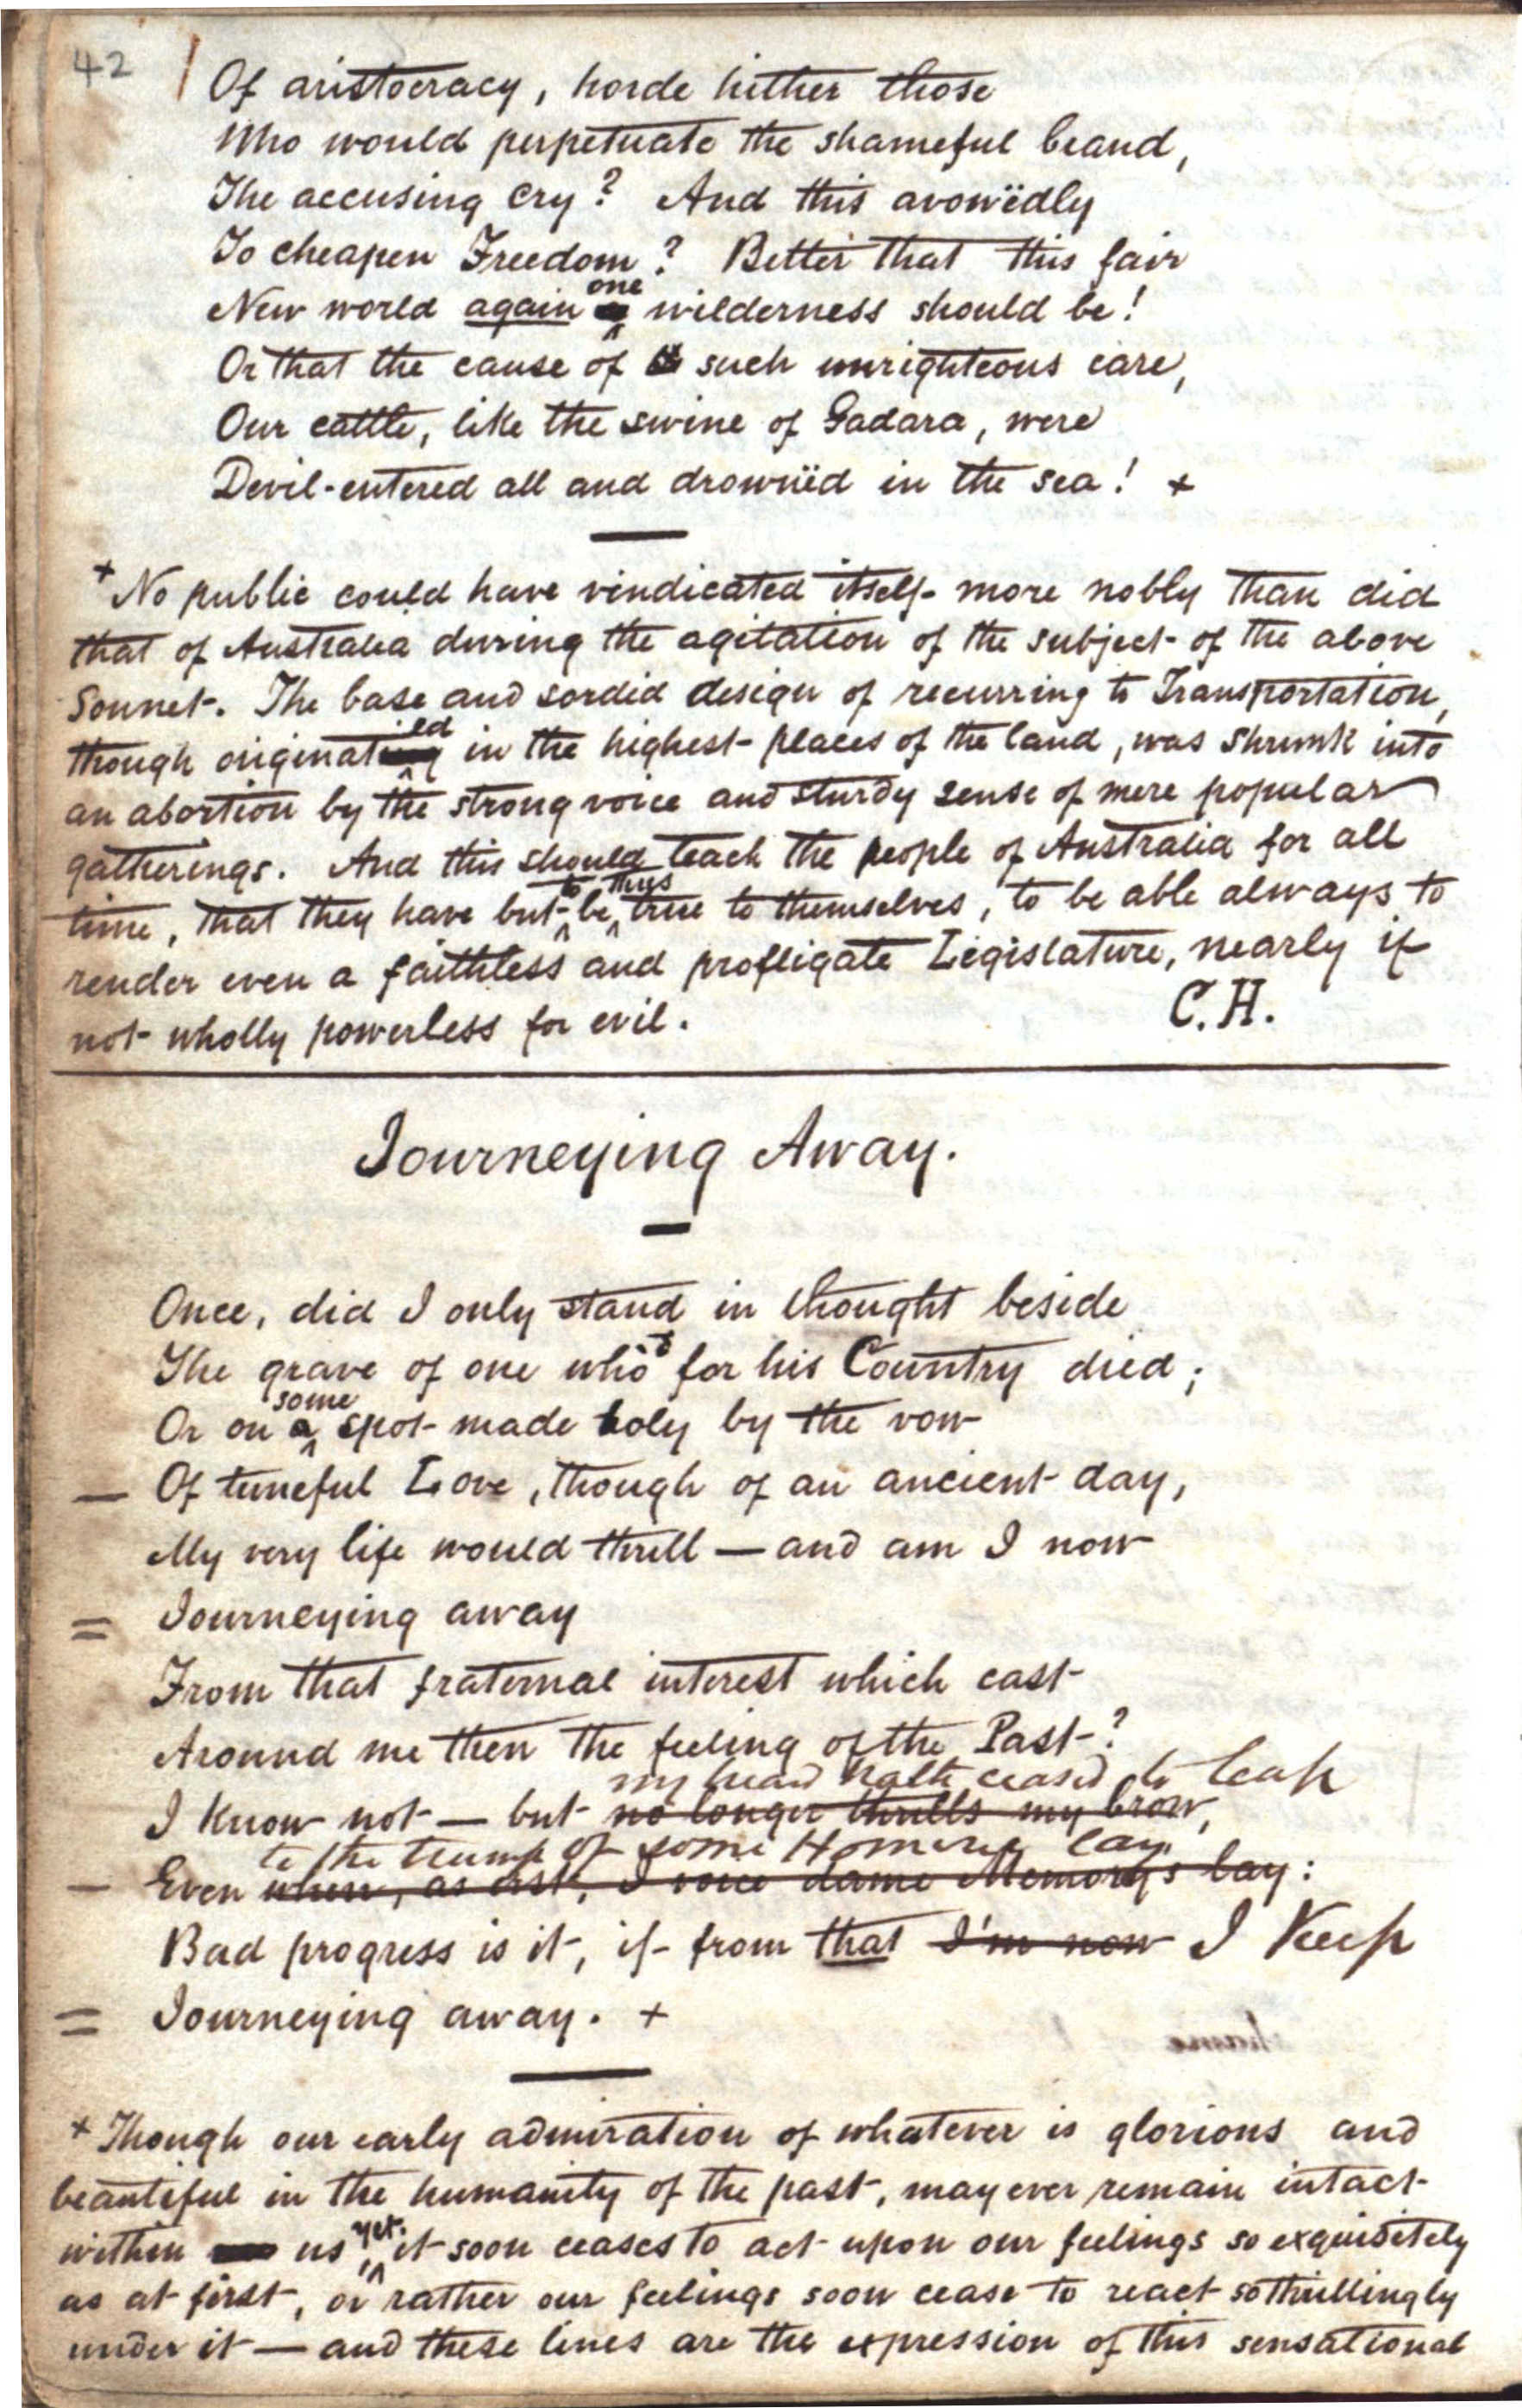 42
Of aristocracy, horde hither those
Who would perpetuate the shameful brand,
The accusing cry? And this avowëdly
To cheapen Freedom? Better that this fair
one
New world again a wilderness should be!
Or that the cause of such unrighteous care,
Our cattle, like the swine of Gadara, were
Devil-entered all and drownëd in the sea! +
+ No public could have vindicated itself more nobly than did
that of Australia during the agitation of the subject of the above
Sonnet. The base and sordid design of recurring to Transportation,
ed
though originating in the highest places of the land, was shrunk into
an abortion by the strong voice and sturdy sense of mere popular
gatherings. And this should teach the people of Australia for all
to thus
time, that they have but be true to themselves, to be able always to
render even a faithless and profligate Legislature, nearly if
not wholly powerless for evil. C.H.
Journeying Away.
Once, did I only stand in thought beside
The grave of one who for his Country died;
some
Or on a spot made holy by the vow
— Of tuneful Love, though of an ancient day,
My very life would thrill — and am I now
= Journeying away
From that fraternal interest which cast
Around me then the feeling of the Past?
my head hath ceased to leap
I know not — but no longer thrills my brow,
to the trump of some Homeric lay
— Even when, as erst, I voice dame Memory's lay:
Bad progress is it, if from that I'm now I Keep
= Journeying away. +
+ Though our early admiration of whatever is glorious and
beautiful in the humanity of the past, may ever remain intact
yet
within us, it soon ceases to act upon our feelings so exquisitely
as at first, or rather our feelings soon cease to react so thrillingly
under it — and these lines are the expression of this sensational